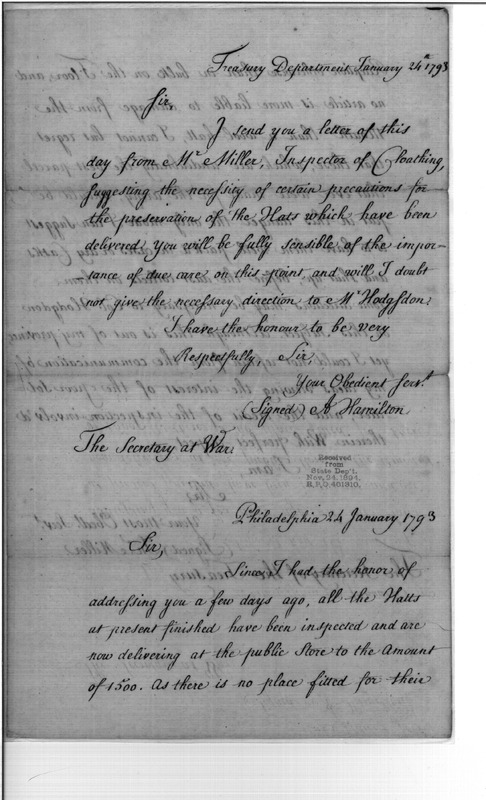 Treasury Department January 24th 1793
Sir,
I send you a letter of this
day from Mr Miller, Inspector of Cloathing,
suggesting the necessity of certain precautions for
the preservation of The Hats which have been
delivered; you will be fully sensible of the impor-
tance of due care on this point, and will I doubt
not give the necessary direction to Mr Hodgsdon.
I have the honour to be very
Respectfully, Sir,
Your Obedient Servt
(Signed) A Hamilton
The Secretary at War.
Received
from
State Dep't.
Nov. 24, 1894,
R.P.D 401910.
Philadelphia 24 January 1793
Sir,
Since I had the honor of
addressing you a few days ago, all the Hatts
at present finished have been inspected and are
now delivering at the public Store to the Amount
of 1500. As there is no place fitted for their